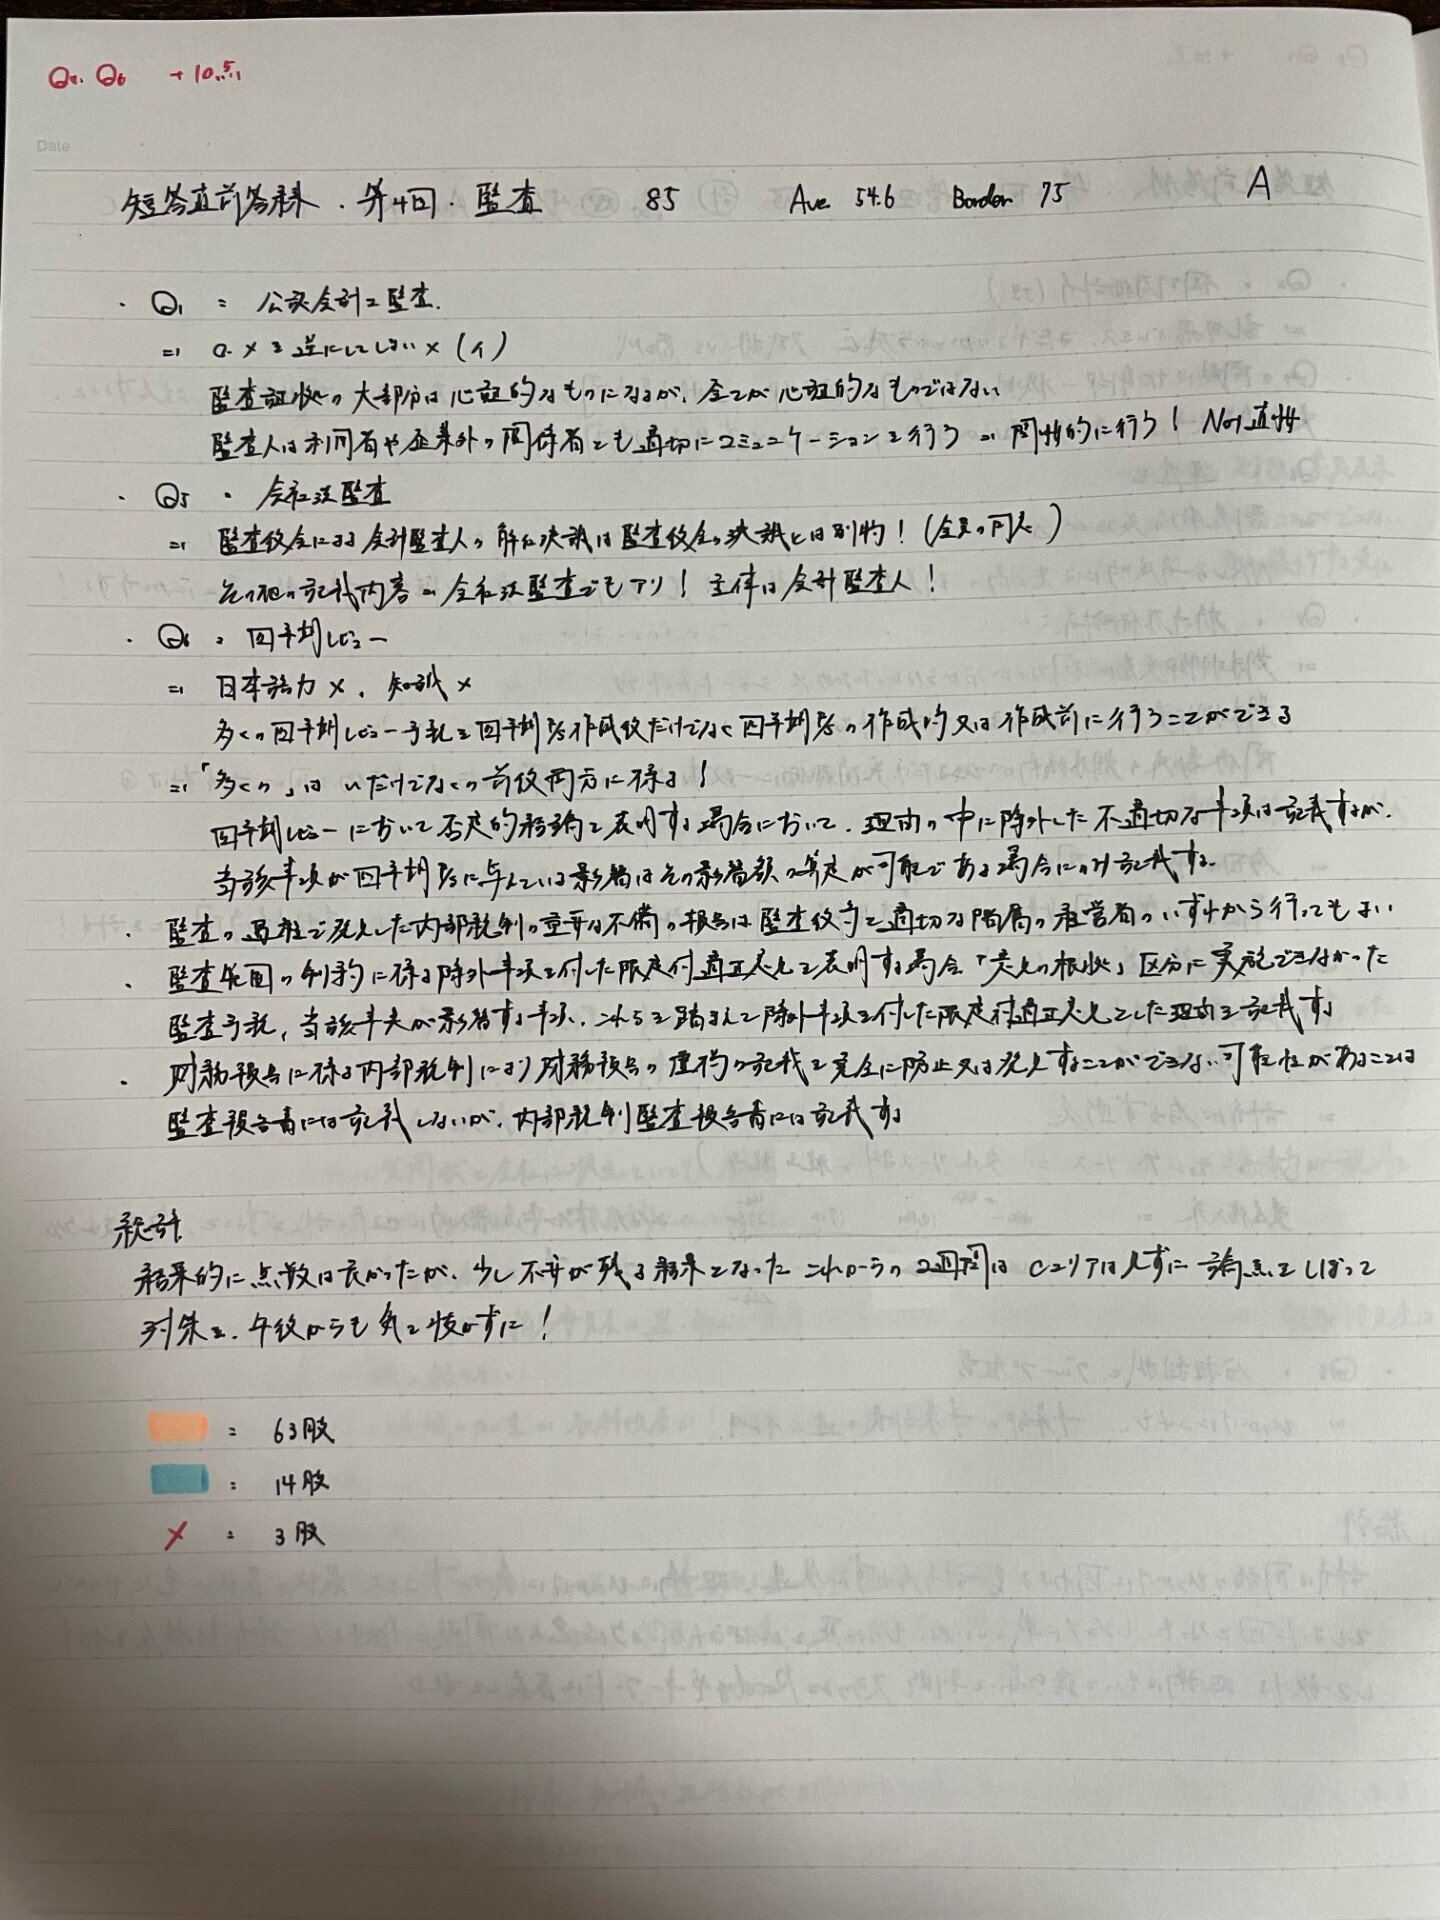 Q5. Q6 +10点
Date
短答直前答練・第4回・監査 85 Ave 54.6 Border 75 A
・Q1 = 公認会計士監査
⇒ ○×を逆にしてしまい×(イ)
監査証拠の大部分は心証的なものになるが、全てが心証的なものではない
監査人は利用者や企業外の関係者とも適切にコミュニケーションを行う ⇒ 間接的に行う! Not直接
・Q5・会社法監査
⇒ 監査役会による会計監査人の解任決議は監査役会の決議とは別物!(全員の同意)
その他の記載内容 ⇒ 会社法監査でもアリ! 主体は会計監査人!
・Q6 = 四半期レビュー
⇒ 日本語力×、知識×
多くの四半期レビュー手続を四半期F/S作成後だけでなく四半期F/Sの作成時又は作成前に行うことができる
⇒「多くの」は いだけでなくの前後両方に係る!
四半期レビューにおいて否定的結論を表明する場合において、理由の中に除外した不適切な事項は記載するが、
当該事項が四半期F/Sに与えている影響はその影響額の算定が可能である場合にのみ記載する。
・監査の過程で発見した内部統制の重要な不備の報告は監査役等と適切な階層の経営者のいずれから行ってもよい
・監査範囲の制約に係る除外事項を付した限定付適正意見を表明する場合「意見の根拠」区分に実施できなかった
監査手続、当該事実が影響する事項、これらを踏まえて除外事項を付した限定付適正意見とした理由を記載する
・財務報告に係る内部統制により財務報告の虚偽の記載を完全に防止又は発見することができない可能性があることは
監査報告書には記載しないが、内部統制監査報告書には記載する
統計
結果的に点数は良かったが、少し不安が残る結果となった これからの2週間は Cエリアは見ずに 論点をしぼって
対策を、午後からも気を抜かずに!
= 63肢
= 14肢
× = 3肢